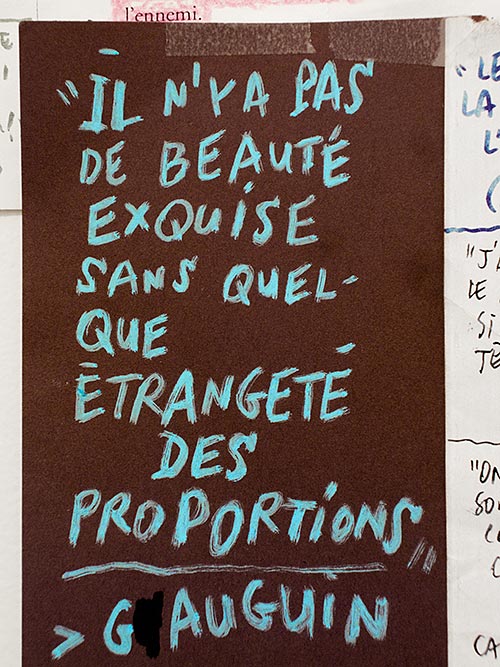 l'ennemi.
"IL N'Y A PAS
DE BEAUTÉ
EXQUISE
SANS QUEL-
QUE
ÉTRANGETÉ
DES
PROPORTIONS"
> GAUGUIN
"LE
LA
"J'A
DE
SI
"ON